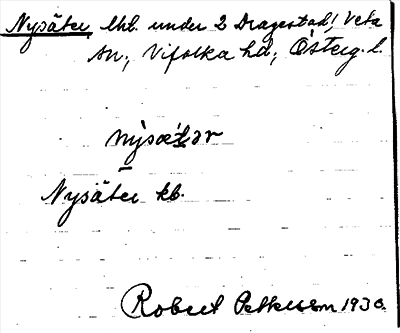 Nysäter, lht. under 2 Dragestad, Veta
sn, Vifolka hd, Österg. l.
nysæ̀tər
Nysäter kb.
Robert Pettersson 1930.